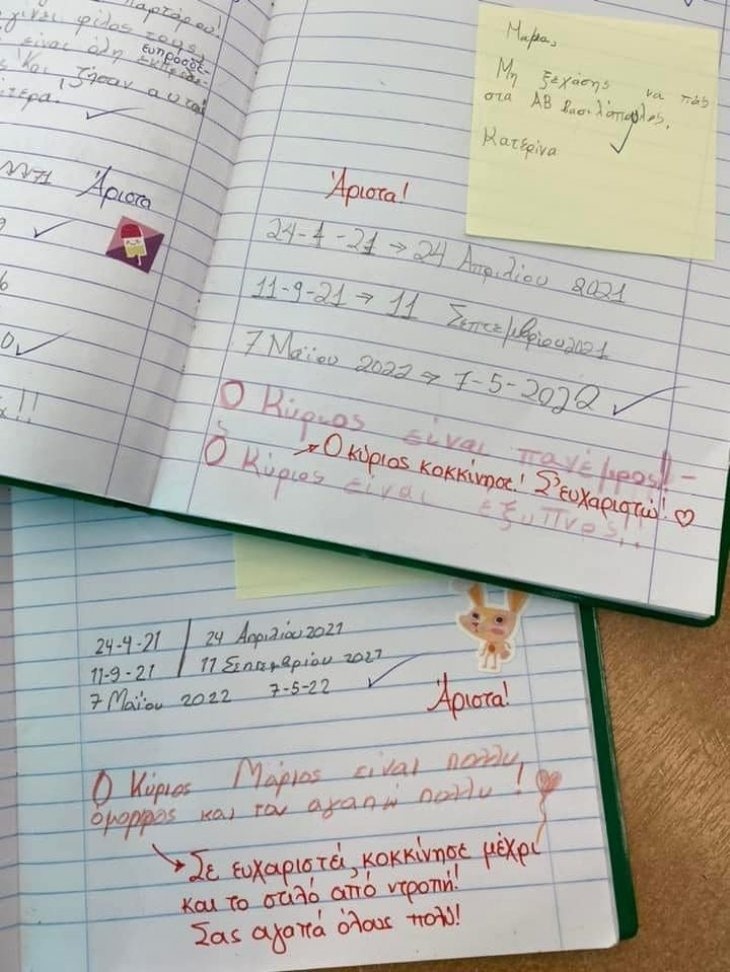 γίνει φίλος τους,
είναι όλη ευπρόσδε-
και ζήσαν αυτοί
Άριστα
Μαμα,
Μη ξεχάσης να πάς
στα ΑΒ βασιλόπουλος.
Κατερίνα
Άριστα!
24-4-21 → 24 Απριλίου 2021
11-9-21 → 11 Σεπτεμβρίου 2021
7 Μαΐου 2022 → 7-5-2022
Ο Κύριος είναι πανέμρος!!
→ Ο κύριος κοκκίνησε! Σ'ευχαριστώ! ♡
Ο Κύριος είναι έξυπνος!!
24-4-21 | 24 Απριλίου 2021
11-9-21 | 11 Σεπτεμβρίου 2021
7 Μαΐου 2022 7-5-22
Άριστα!
Ο Κύριος Μάριος είναι πολλυ
όμορρος και τον αγαπώ πολλυ!
→ Σε ευχαριστεί, κοκκίνησε μέχρι
και το στιλό από ντροπή!
Σας αγαπά όλους πολύ!